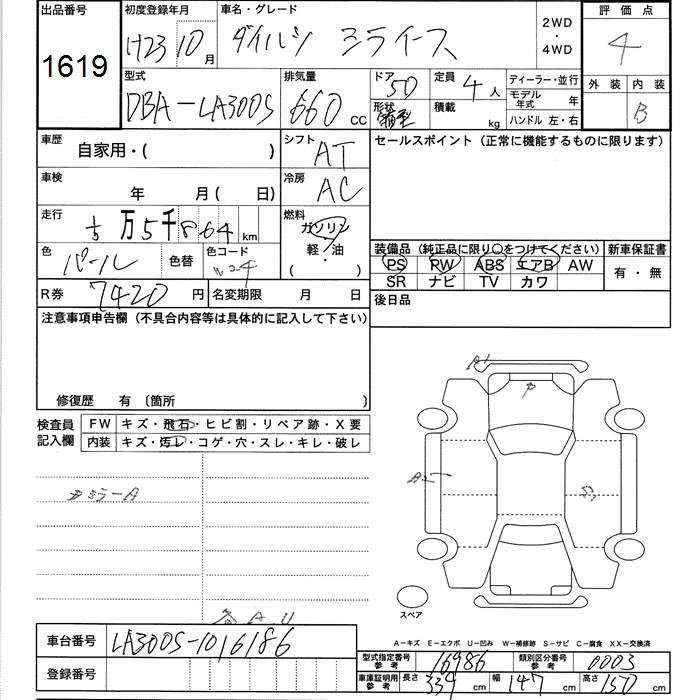 出品番号 初度登録年月 車名・グレード 2WD・4WD 評価点
1619 H23 10月 ダイハツ ミライース 4
型式 排気量 ドア 5D 定員 4人 ディーラー・並行 外装 内装
DBA-LA300S 660cc 形状 箱型 積載 kg モデル年式 年 B
ハンドル 左・右
車歴 自家用・( ) シフト AT セールスポイント (正常に機能するものに限ります)
車検 年 月( 日) 冷房 AC
走行 万5千864km 燃料 ガソリン・軽・油 ( )
色 パール 色替 色コード W24 装備品(純正品に限り○をつけてください) 新車保証書
PS PW ABS エアB AW 有・無
SR ナビ TV カワ
R券 7420円 名変期限 月 日 後日品
注意事項申告欄(不具合内容等は具体的に記入して下さい)
修復歴 有 〔箇所
検査員記入欄 FW キズ・飛石・ヒビ割・リペア跡・X要
内装 キズ・汚レ・コゲ・穴・スレ・キレ・破レ
A1
ミラーA
スペア
車台番号 LA300S-1016186
A-キズ E-エクボ U-凹み W-補修跡 S-サビ C-腐食 XX-交換済
登録番号 型式指定番号 参考 16986 類別区分番号 参考 0003
車庫証明用 参考 長さ 339cm 幅 147cm 高さ 150cm